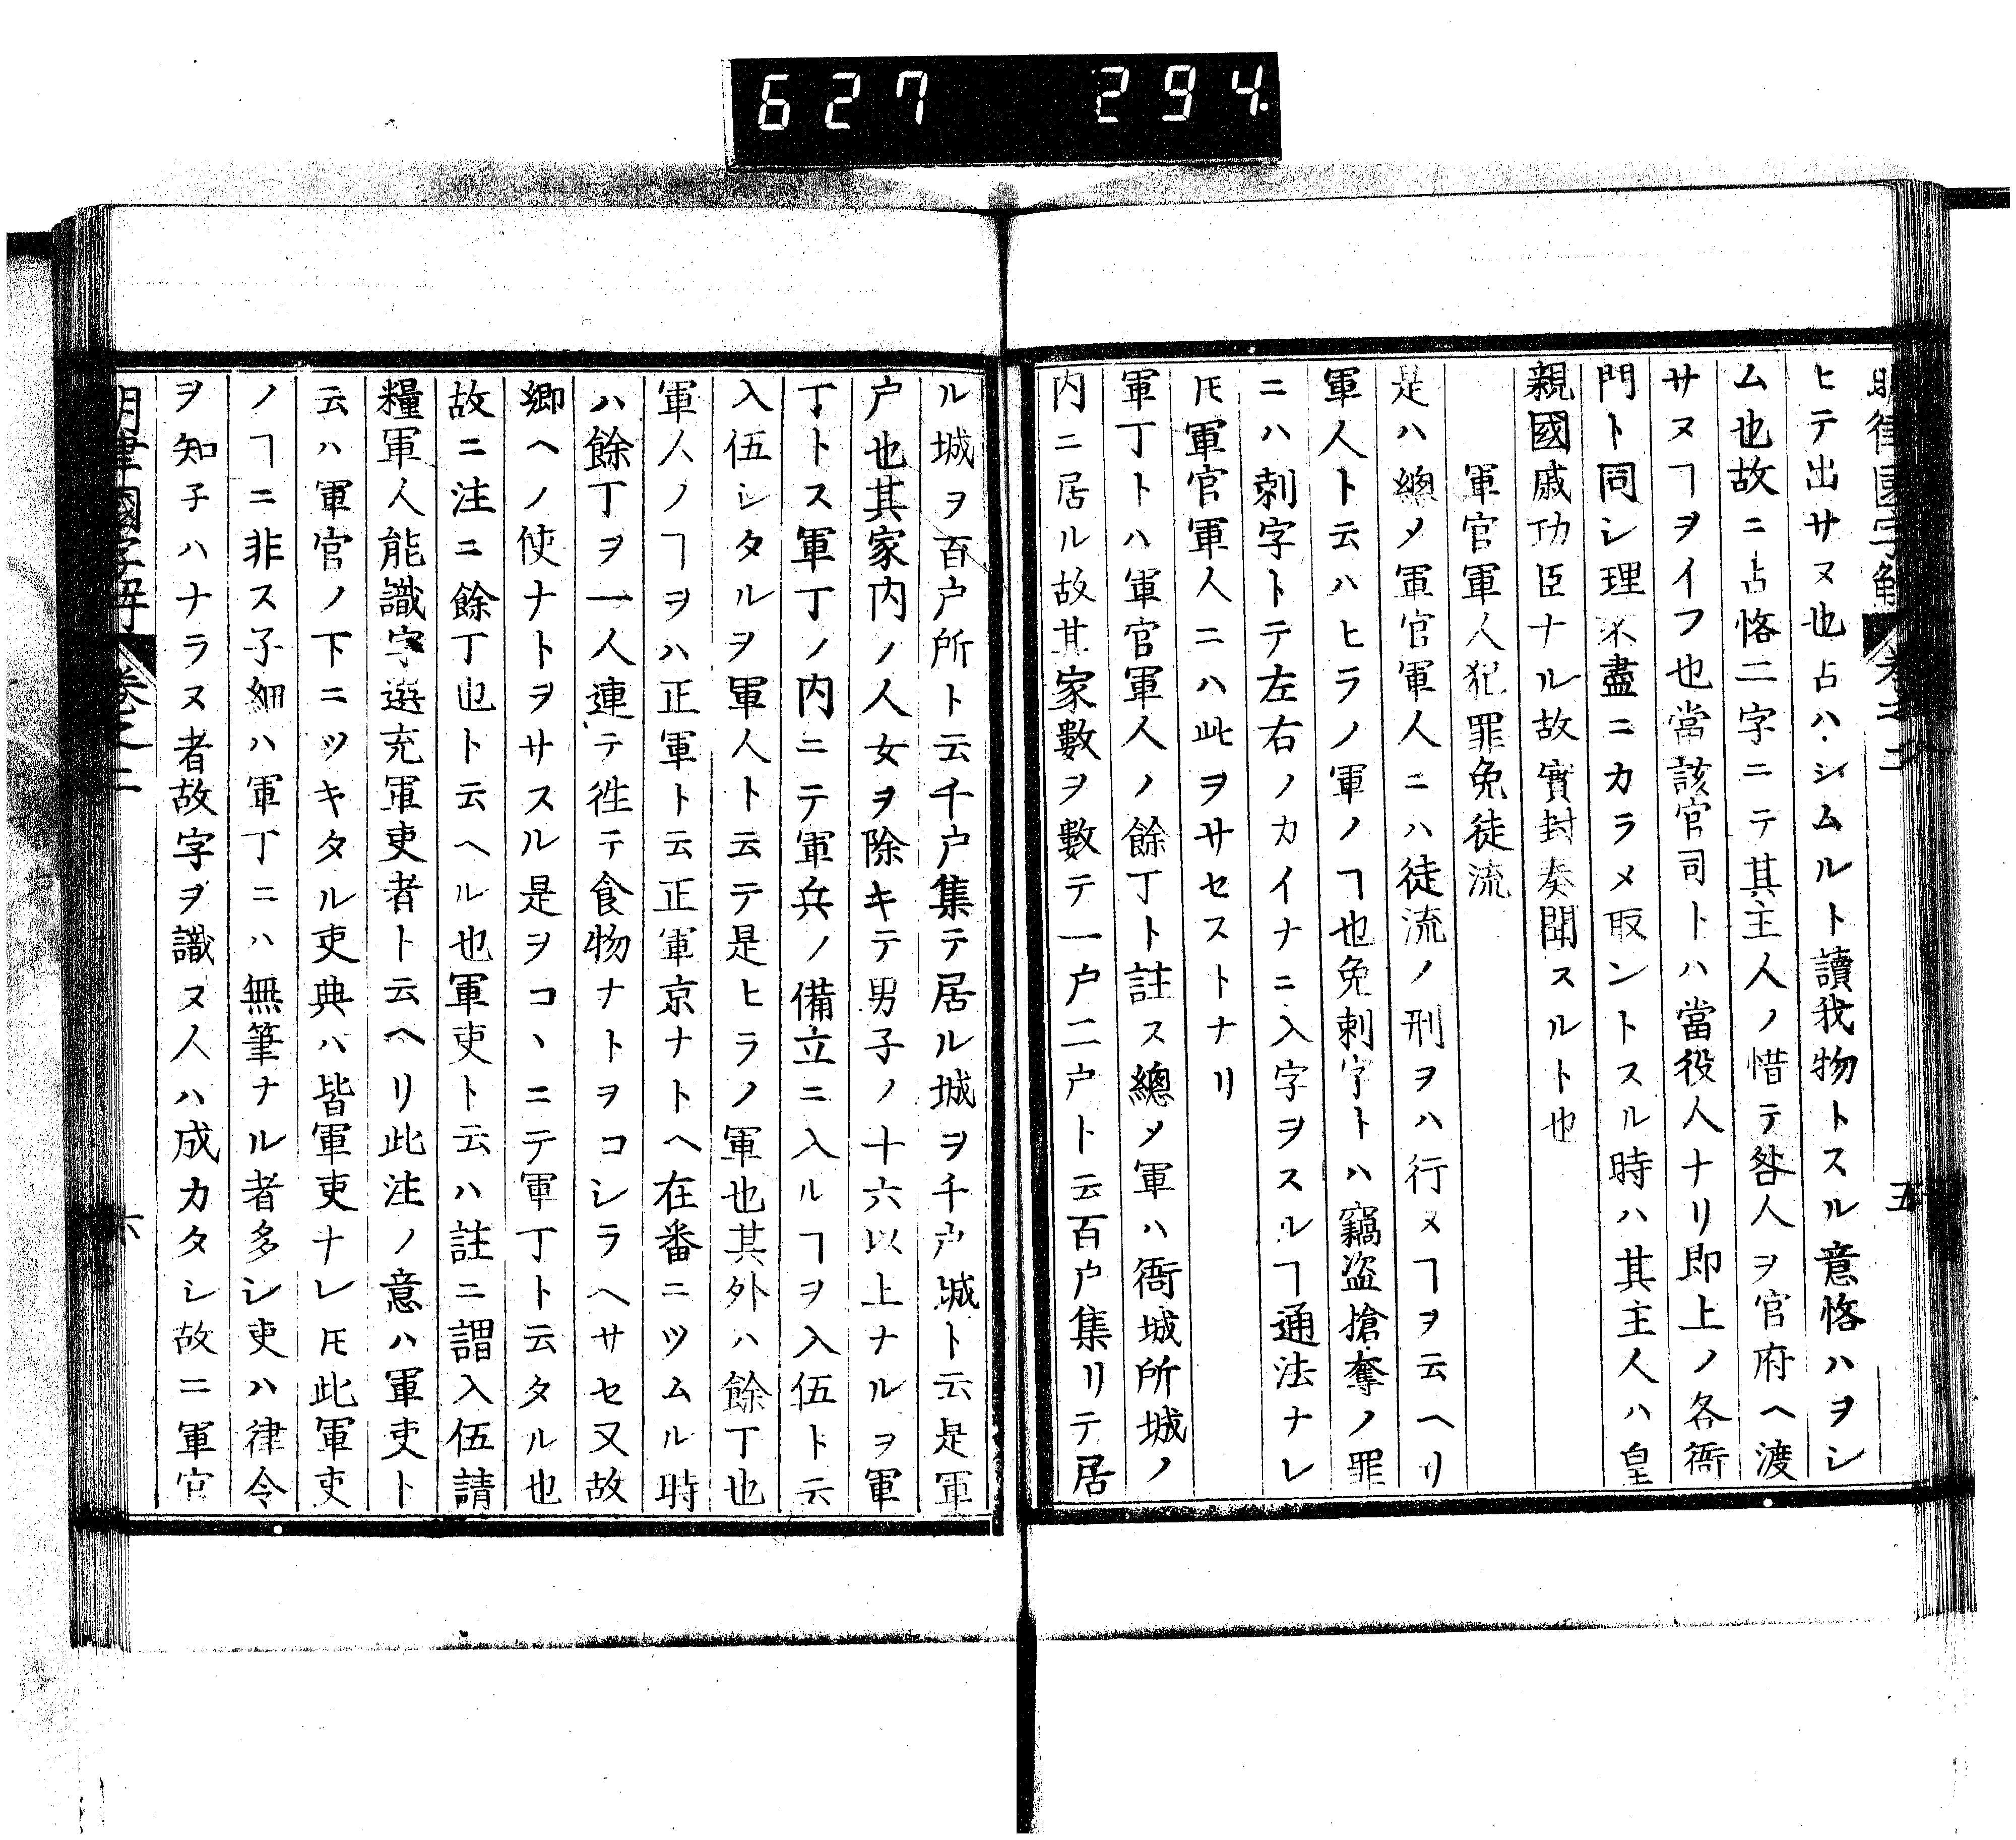 627 294
明律國字解 卷之二 五
ヒテ出サヌ也占ハシムルト讀我物トスル意悋ハヲシ
ム也故ニ占悋二字ニテ其主人ノ惜テ咎人ヲ官府ヘ渡
サヌヿヲイフ也當該官司トハ當役人ナリ即上ノ各衙
門ト同シ理不盡ニカラメ取ントスル時ハ其主人ハ皇
親國戚功臣ナル故實封奏聞スルト也
軍官軍人犯罪免徒流
是ハ總メ軍官軍人ニハ徒流ノ刑ヲハ行ヌヿヲ云ヘリ
軍人ト云ハヒラノ軍ノヿ也免刺字トハ竊盗搶奪ノ罪
ニハ刺字トテ左右ノカイナニ入字ヲスルヿ通法ナレ
𪜈軍官軍人ニハ此ヲサセストナリ
軍丁トハ軍官軍人ノ餘丁ト註ス總メ軍ハ衙城所城ノ
内ニ居ル故其家數ヲ數テ一户二户ト云百户集リテ居
ル城ヲ百户所ト云千户集テ居ル城ヲ千户城ト云是軍
户也其家内ノ人女ヲ除キテ男子ノ十六以上ナルヲ軍
丁トス軍丁ノ内ニテ軍兵ノ備立ニ入ルヿヲ入伍ト云
入伍シタルヲ軍人ト云テ是ヒラノ軍也其外ハ餘丁也
軍人ノヿヲハ正軍ト云正軍京ナトヘ在番ニツムル時
ハ餘丁ヲ一人連テ徃テ食物ナトヲコシラヘサセ又故
郷ヘノ使ナトヲサスル是ヲコヽニテ軍丁ト云タル也
故ニ注ニ餘丁也ト云ヘル也軍吏ト云ハ註ニ謂入伍請
糧軍人能識字選充軍吏者ト云ヘリ此注ノ意ハ軍吏ト
云ハ軍官ノ下ニツキタル吏典ハ皆軍吏ナレ𪜈此軍吏
ノヿニ非ス子細ハ軍丁ニハ無筆ナル者多シ吏ハ律令
ヲ知子ハナラヌ者故字ヲ識ヌ人ハ成カタシ故ニ軍官
明律國字解 卷之二 六